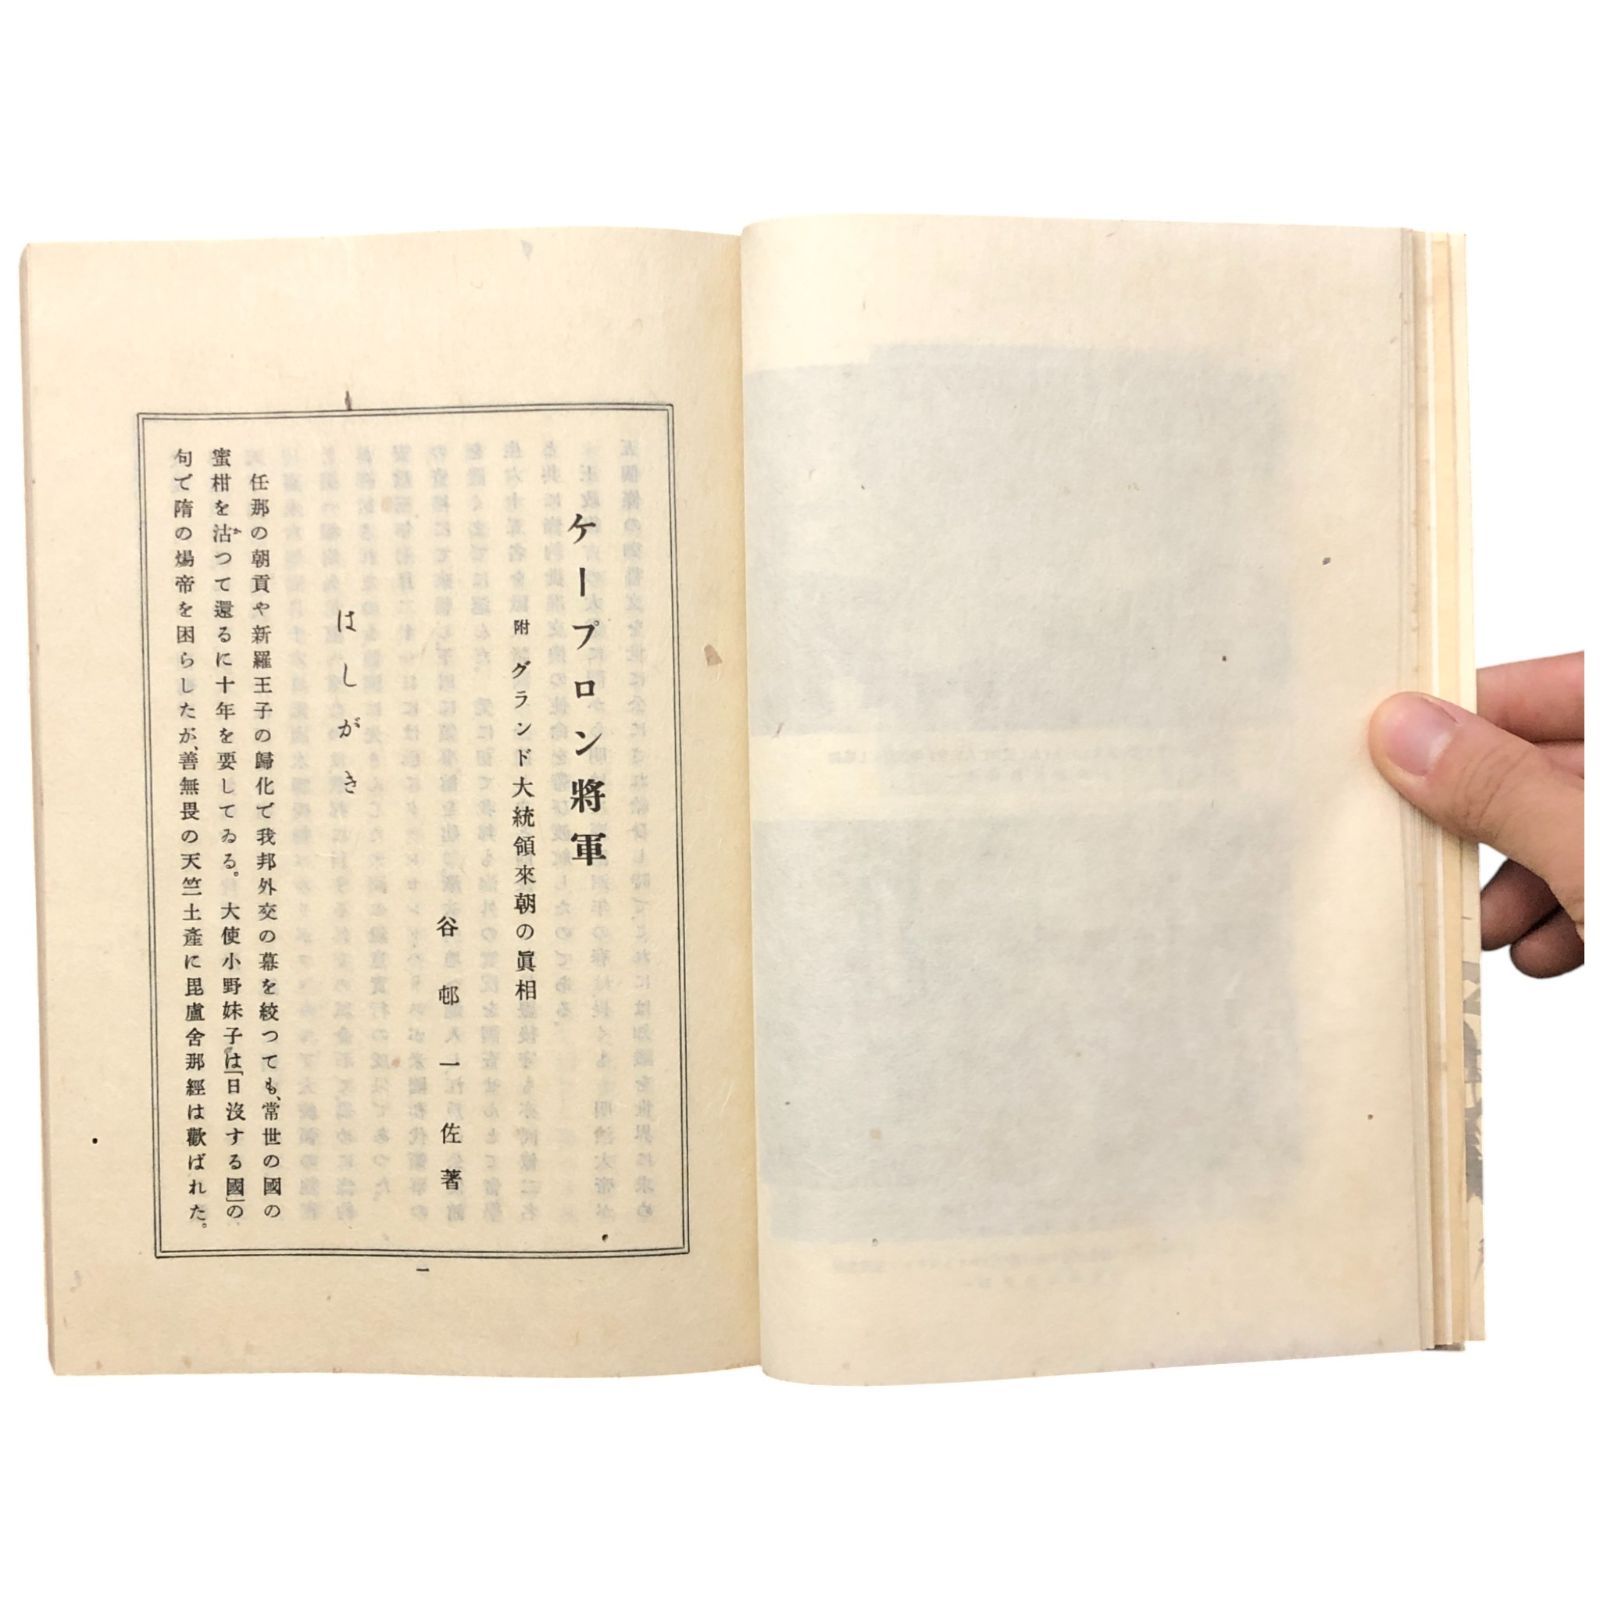 ケープロン將軍
附 グランド大統領來朝の眞相
谷邨一佐著
はしがき
任那の朝貢や新羅王子の歸化で我邦外交の幕を絞つても、常世の國の
蜜柑を沽つて還るに十年を要してゐる。大使小野妹子は「日沒する國」の
句で隋の煬帝を困らしたが、善無畏の天竺土產に毘盧舍那經は歡ばれた。
一